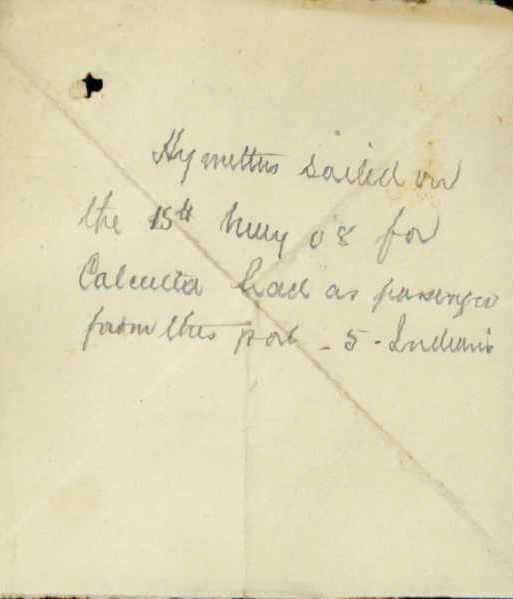 Hymettus sailed on
the 15th May 08 for
Calcutta had as passenger
from this port - 5 - Indians